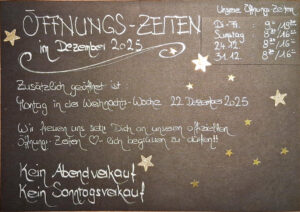 ÖFFNUNGS-ZEITEN
im Dezember 2025
Unsere Öffnungs-Zeiten:
Di-Fr
Samstag
24.12
31.12
Zusätzlich geöffnet ist
Montag in der Weihnachts-Woche 22 Dezember 2025
Wir freuen uns sehr Dich an unseren offiziellen
Öffnungs-Zeiten ♡-lich begrüssen zu dürfen!!
Kein Abendverkauf
Kein Sonntagsverkauf